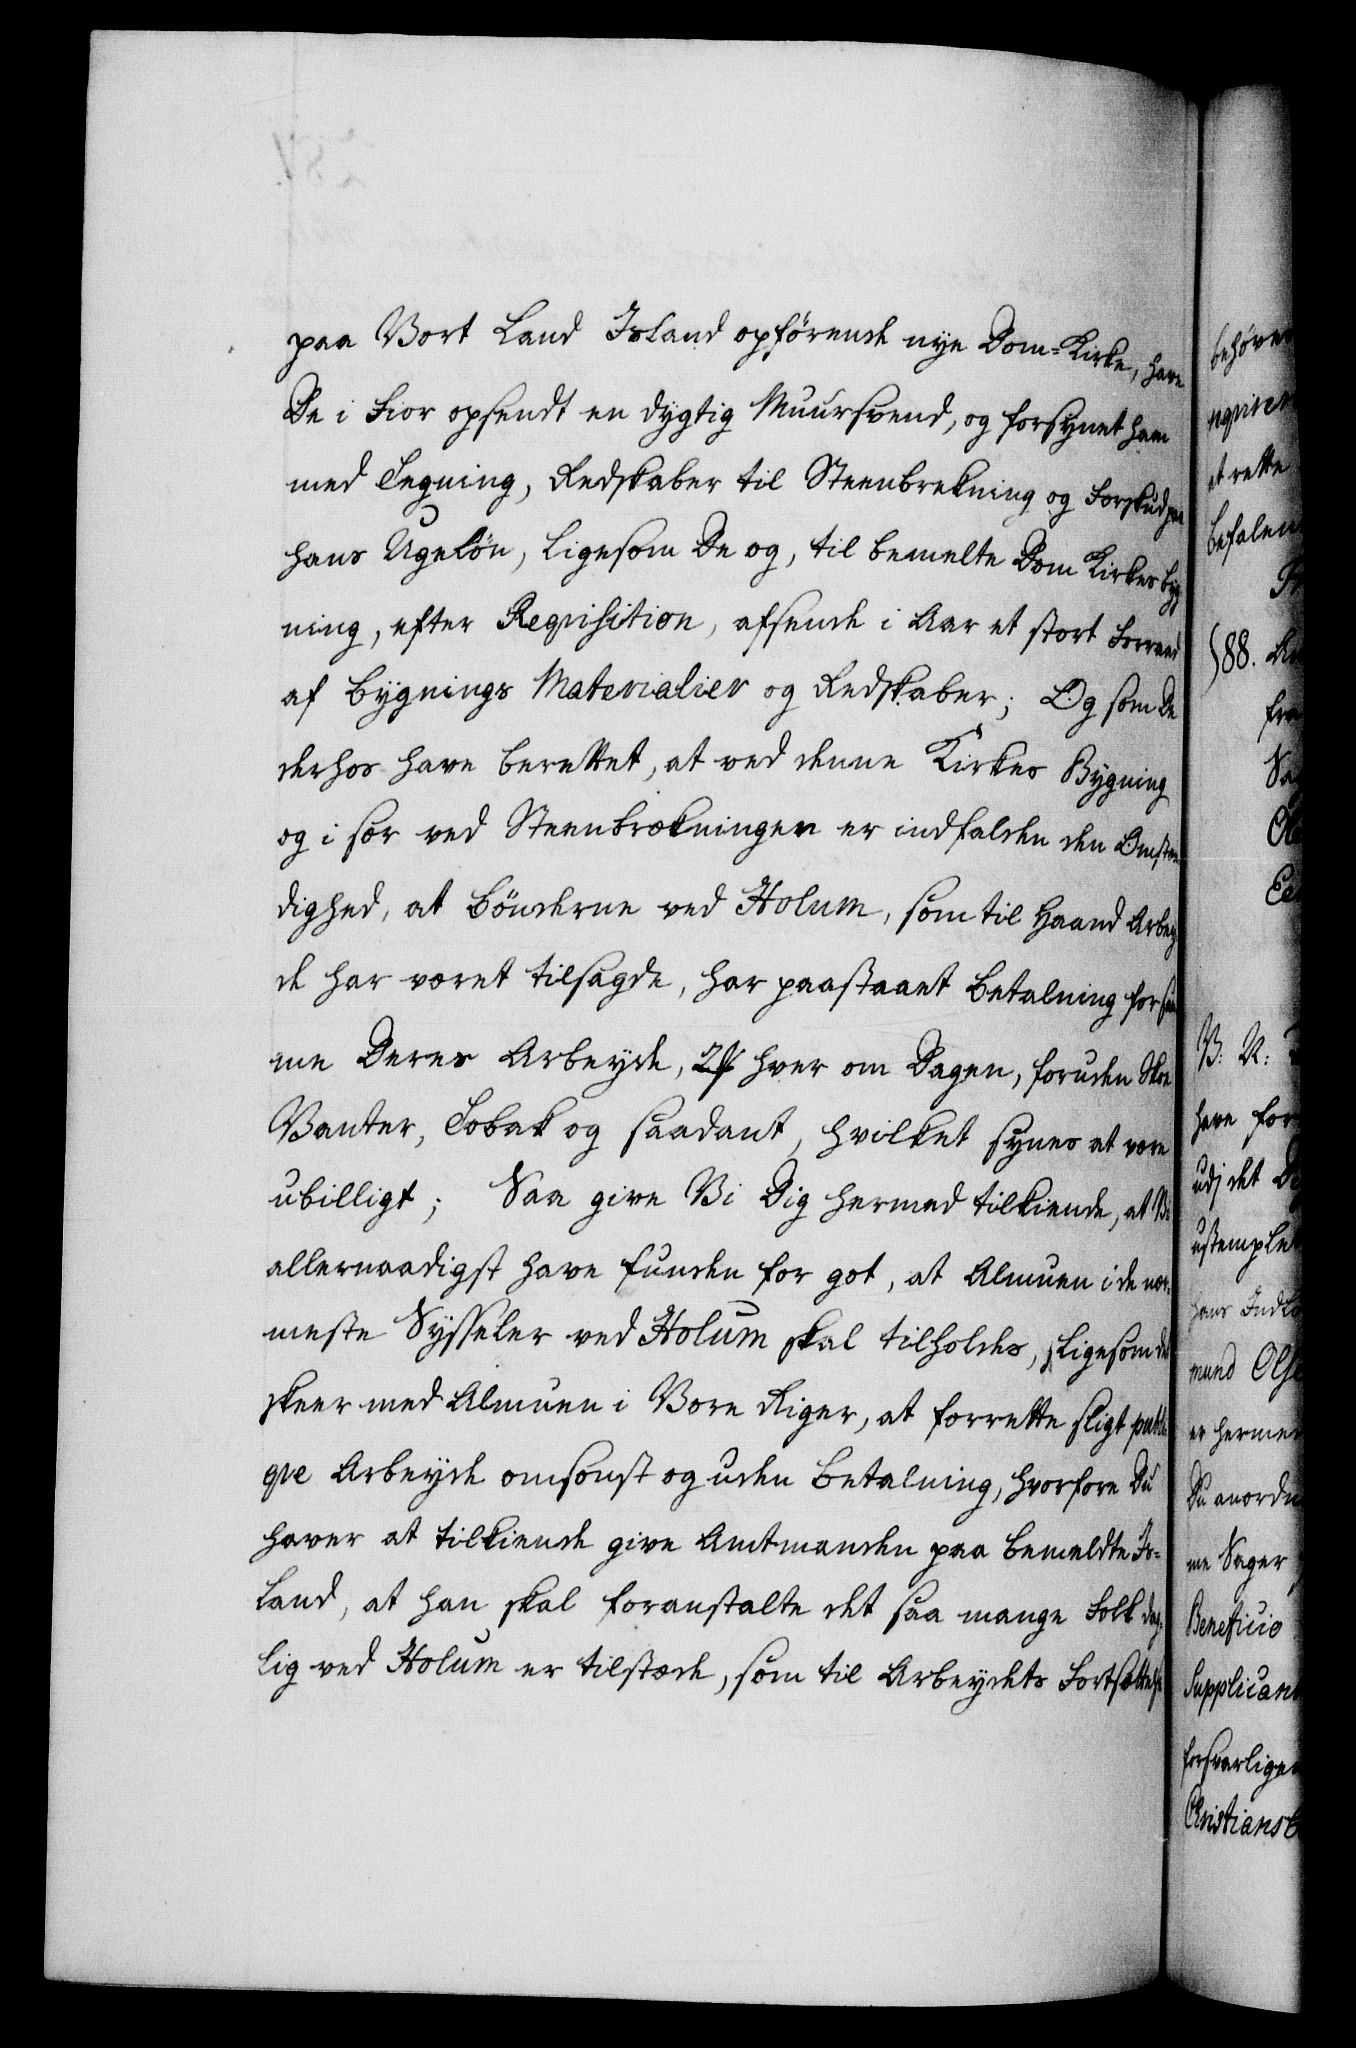 paa Vort Land Island opførende nye Dom-Kirke, have
De i Fior opsendt en dygtig Muursvend, og forsynet ham
med Tegning, Redskaber til Steenbrekning og Forskud paa
hans Ugeløn, ligesom De og, til bemelte Dom Kirkes byg-
ning, efter Requisition, afsende i Aar et stort Forraad
af bygnings Materialier og Redskaber; Og som De
derhos have berettet, at ved denne Kirkes Bygning
og i sær ved Steenbrækningen er indfalden den Omsten-
dighed, at bønderne ved Holum, som til Haand Arbey-
de har været tilsagde, har paastaaet betalning for sam-
me Deres Arbeyde, 2ß hver om Dagen, foruden Skoe
Vanter, Tobak og saadant, hvilket synes at være
ubilligt; Saa give Vi Dig hermed tilkiende, at Vi
allernaadigst have funden for got, at Almuen i de nær-
meste Sysseler ved Holum skal tilholdes, ligesom det
skeer med Almuen i Vore Riger, at forrette sligt publi-
qve Arbeyde omsonst og uden betalning, hvorfore Du
haver at tilkiende give Amtmanden paa bemeldte Is-
land, at han skal foranstalte det saa mange Folk dag-
lig ved Holum er tilstæde, som til Arbeydets Fortsættelse
behøve
et rette
befalen
588.
B: R:
have for
udj det
ustemple
hans Indla
mund Olse
er hermed
Du anordn
me Sager
Beneficio
Supplican
forsvarligen
Christiansb